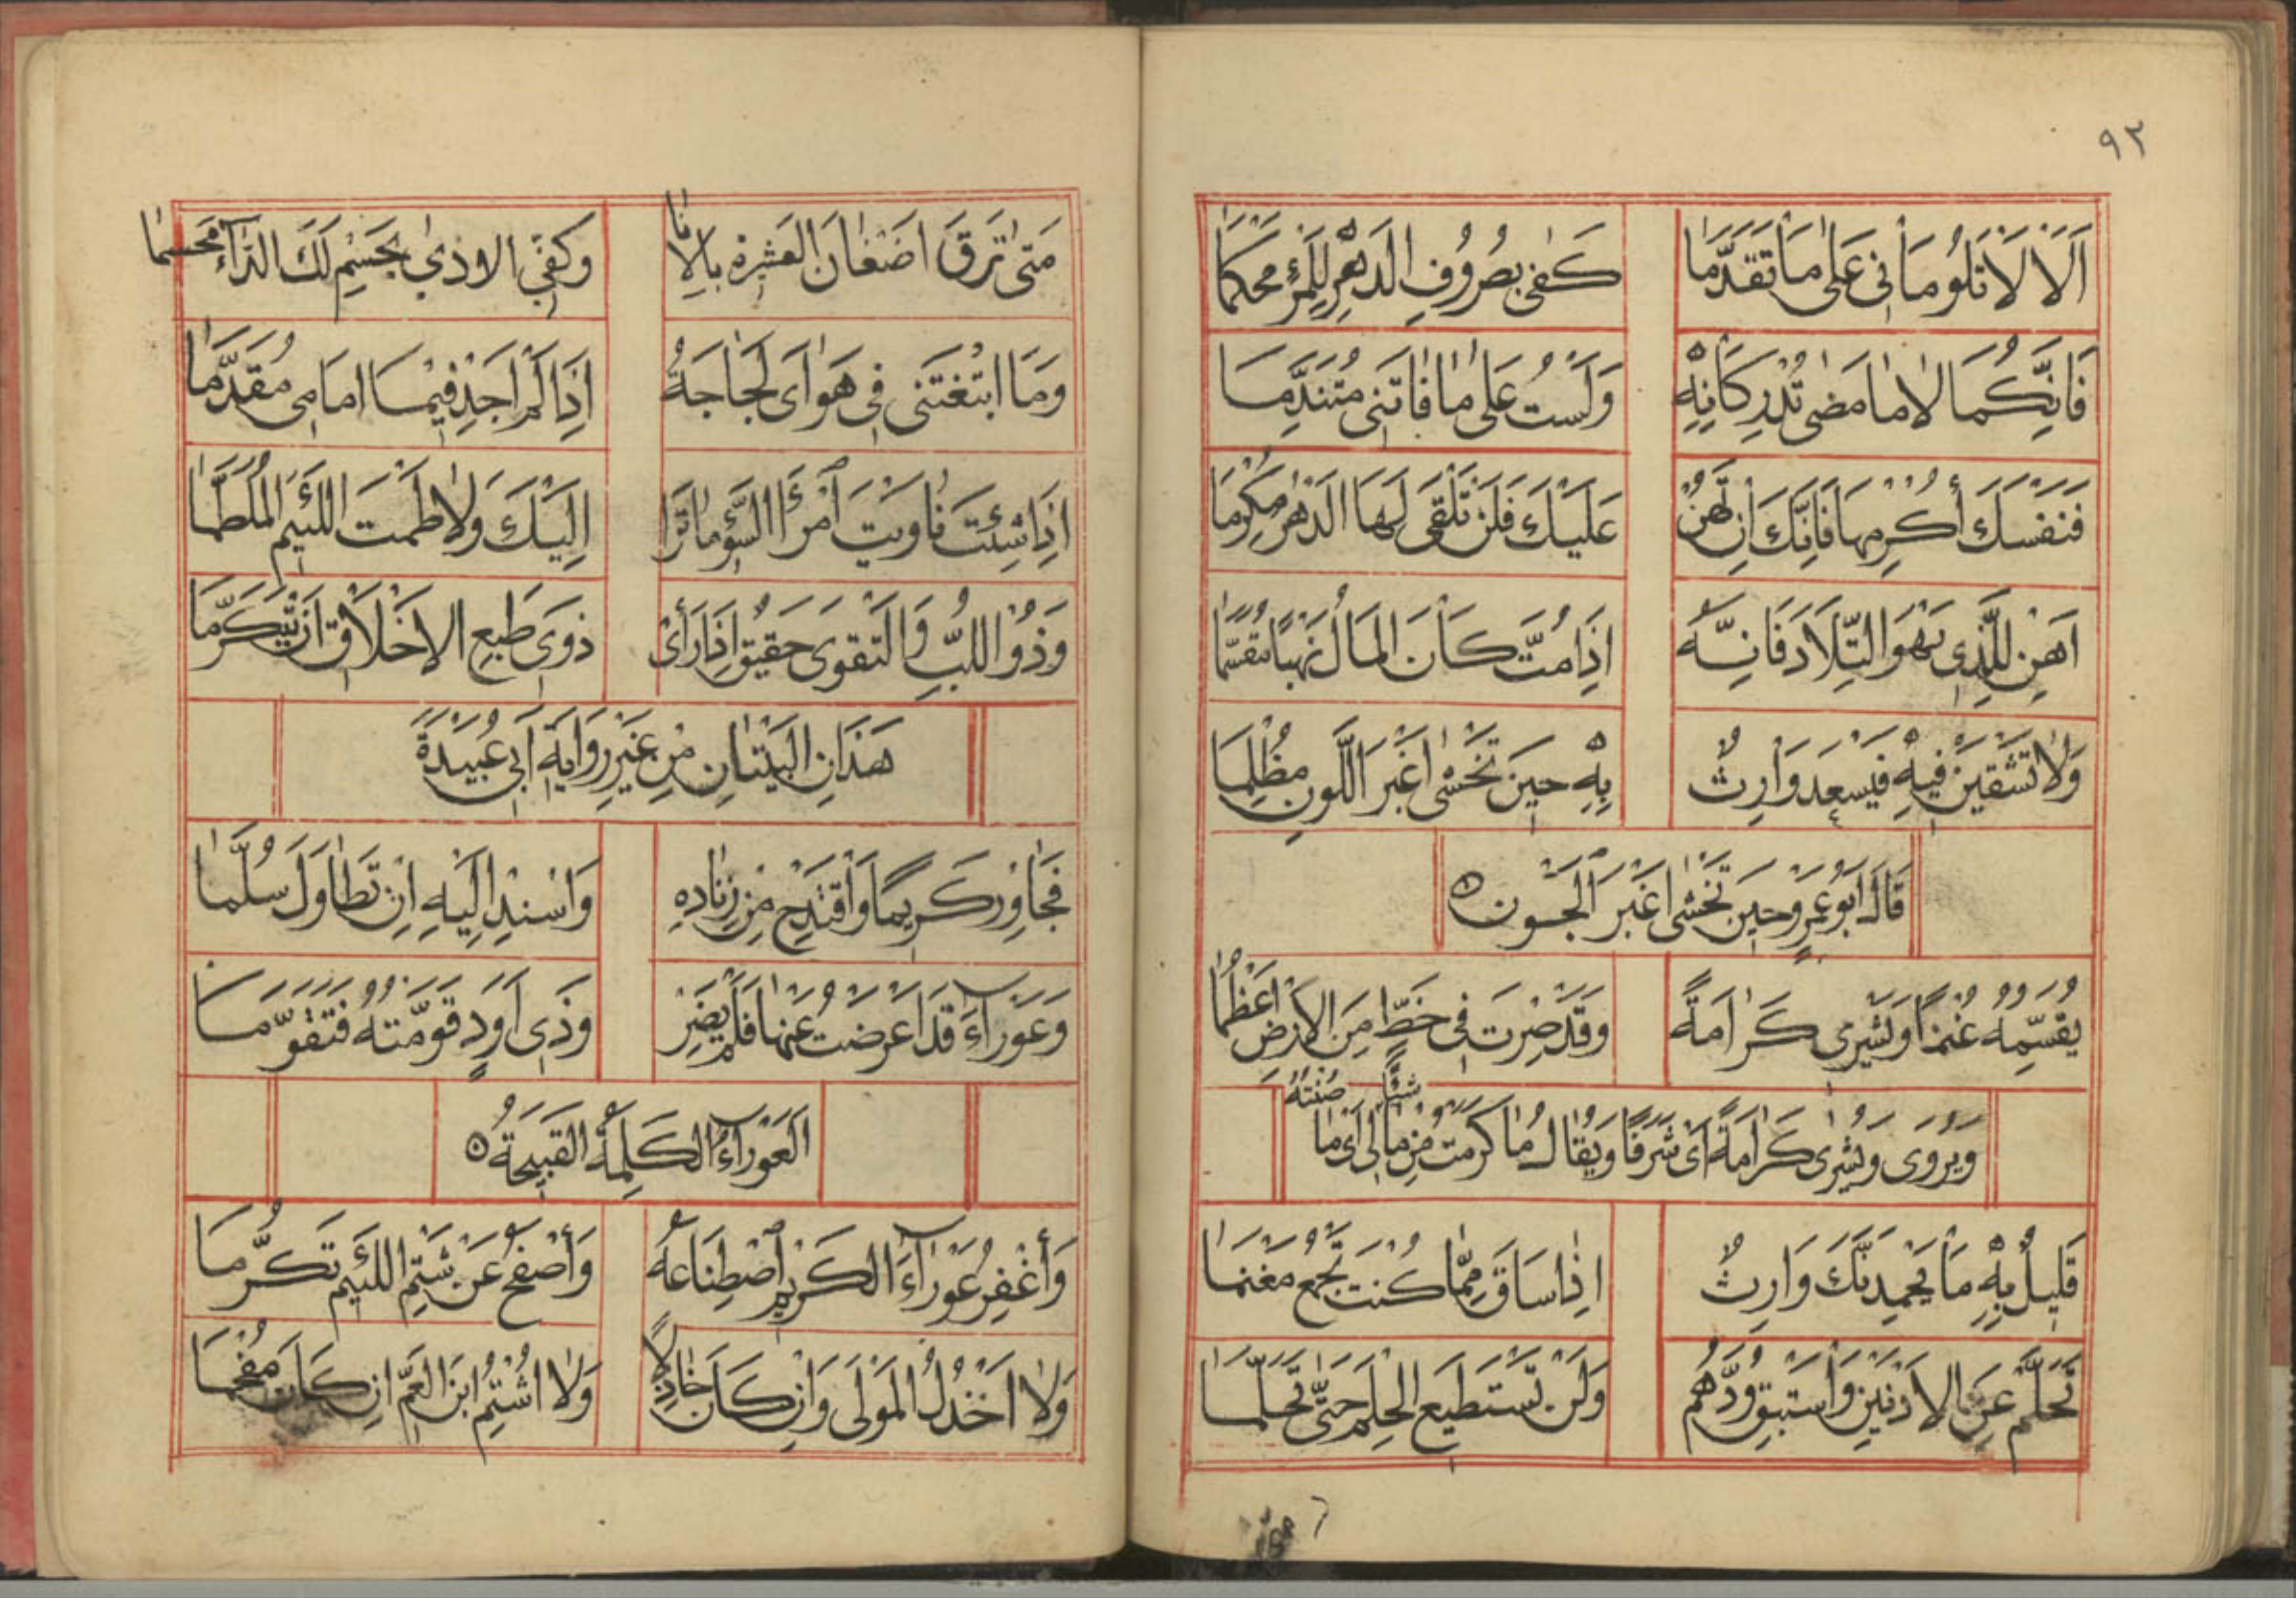 ٩٢
اَلَا لَا تَلُومَانِى عَلٰى مَا تَقَدَّمَا كَفٰى بِصُرُوفِ الدَهْرِ لِلمَرْءِ مُحكِمَا
فَاِنَّكُمَا لَا مَا مَضٰى تُدْرِكَانِهِ وَلَستُ عَلٰى مَا فَاتَنِى مُتَنَدِّمَا
فَنَفسَكَ أَكْرِمهَا فَاِنَّكَ اِن تَهُنْ عَلَيْكَ فَلَن تَلْقَى لَهَا الدَهْرَ مُكْرِمَا
اَهِن لِلَّذِى تَهْوَ التِّلَادَ فَاِنَّهُ اِذَا مُتَّ كَانَ المَالُ نَهْبًا مُقَسَّمًا
وَلَا تَشْقَيَن فِيهِ فَيَسْعَدَ وَارِثٌ بِهِ حِينَ تَخْشٰى اَغْبَرَ اللَّونِ مُظْلِمَا
قَالَ اَبُو عَمرٍو حِينَ تَخشٰى اغْبَرَ الجَوْنِ
يُقَسِّمُهُ غُنمًا وَيَشْرِى كَرَامَةً وَقَد صِرْتَ فِى خَطٍّ مِنَ الاَرْضِ اَعْظُمَا
وَيُرْوَى وَيَشْرِى كَرَامَةً اَىْ شَرَفًا وَيُقَالُ مَا كَرُمتَ مِن مَالِى اَىْ مَا
صُنتَهُ
قَلِيلٌ بِهِ مَا يَحْمِدَنَّكَ وَارِثٌ اِذَا سَاقَ مِمَّا كُنتَ تَجْمَعُ مَغْنَمَا
تَحَلَّم عَنِ الاَدْنَيْنِ وَاسْتَبقِ وُدَّهُم وَلَن تَسْتَطِيعَ الحِلمَ حَتّٰى تَحَلَّمَا
مَتٰى تَرقَ اَضغَانَ العَشِيرةِ بِالاَنَا وَكَفِّ الاَذٰى يُحْسَم لَكَ الدَّآءُ مَحسَمَا
وَمَا ابْتَغَتَنى فِى هَوَاىَ لَجَاجَةٌ اِذَا لَم اَجِد فِيمَا امَامِى مُقَدَّمَا
اِذَا شِئتَ نَاوَيتَ امْرَأَ السَّوءِ مَا نَزَا اِلَيْكَ وَلَا طَمتَ اللَئِيمَ المُلَطَّمَا
وَذُو اللُبِّ وَالتَقوَى حَقِيقٌ اِذَا رَأَى ذَوِى طَبَعِ الاَخْلَاقِ اَن يَتَكَرَّمَا
هَذَانِ البَيْتَانِ مِن غَيْرِ رِوَايَةِ اَبِى عُبَيْدَةَ
فَجَاوِر كَرِيمًا وَاقْتَدِح مِن زِنَادِهِ وَاَسْنِد اِلَيهِ اِن تَطَاوَلَ سُلَّمَا
وَعَوْرَآءَ قَد اَعْرَضتُ عَنهَا فَلَم يَضِرْ وَذِى اَوَدٍ قَوَّمتُهُ فَتَقَوَّمَا
العَوْرَآءُ الكَلِمَةُ القَبِيحَةُ
وَأَغْفِرُ عَوْرَآءَ الكَرِيمِ اصْطِنَاعَهُ وَأَصْفَحُ عَن شَتمِ اللَئِيمِ تَكَرُّمَا
وَلَا اَخْذُلُ المَوْلَى وَاِن كَانَ خَاذِلًا وَلَا اشْتِمُ ابنَ العَمِّ اِن كَانَ مُفحَمَا